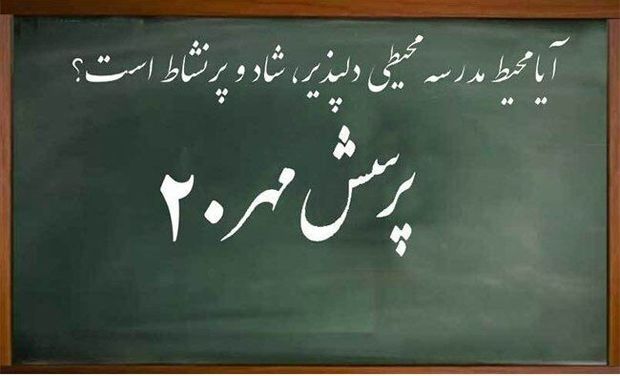 آیا محیط مدرسه محیطی دلپذیر، شاد و پرنشاط است؟
پرسش مهر ۲۰